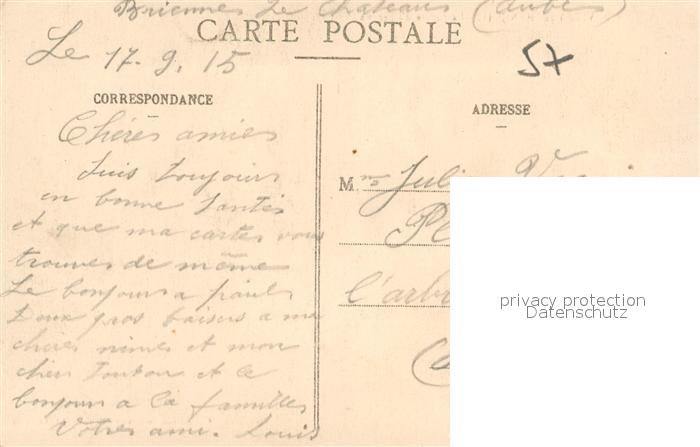 Brienne Le Chateau (Aube)
CARTE POSTALE
Le 17-9.15
57
CORRESPONDANCE
ADRESSE
Chéres amies
Suis toujours
en bonne santés
et que ma cartes vous
trouves de même
Le bonjours a paul
Deux gros baisers a ma
chéres et mon
cher Tonton et le
bonjours a la familles
Votres ami. Louis
Mme Juli
Pl
l'arbr
privacy protection
Datenschutz